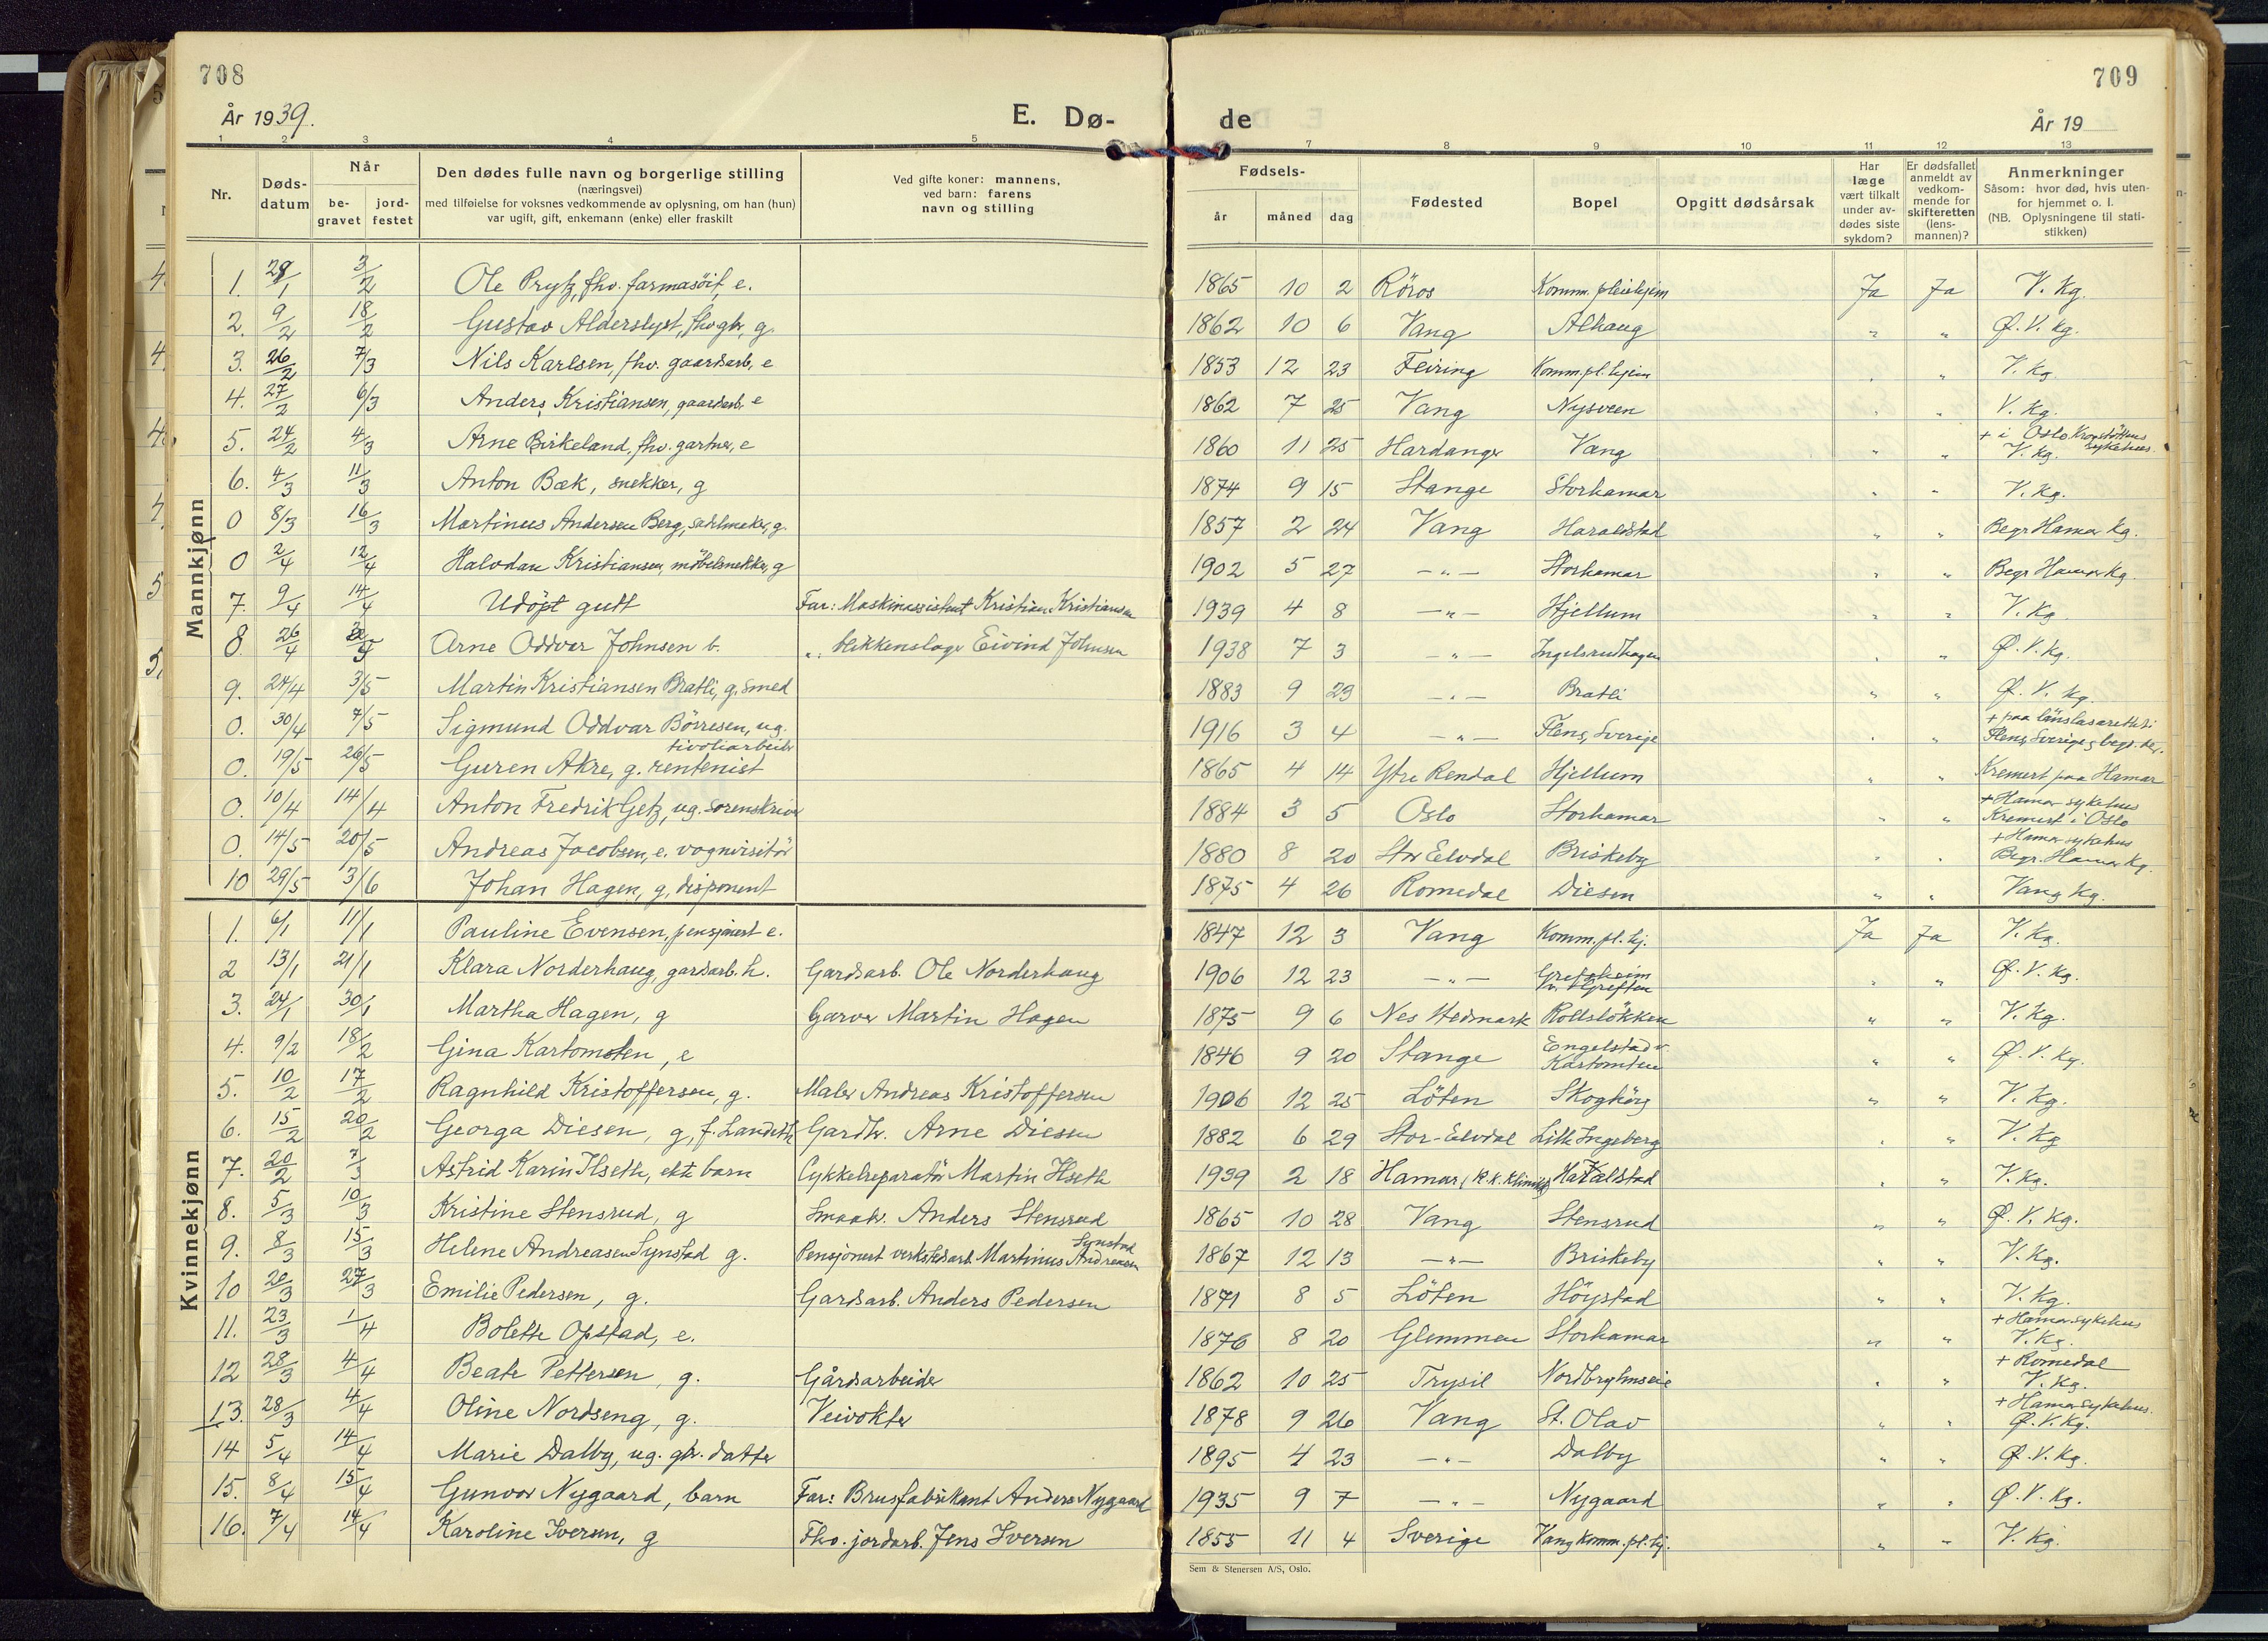 708
709
År 1939.
E. Dø-
de
År 19
1 2 3 4 5 7 8 9 10 11 12 13
Nr.
Døds-
datum
Når
be-
gravet
jord-
festet
Den dødes fulle navn og borgerlige stilling
(næringsvei)
med tilføielse for voksnes vedkommende av oplysning, om han (hun)
var ugift, gift, enkemann (enke) eller fraskilt
Ved gifte koner: mannens,
ved barn: farens
navn og stilling
Fødsels-
år måned dag
Fødested
Bopel
Opgitt dødsårsak
Har
læge
vært tilkalt
under av-
dødes siste
sykdom?
Er dødsfallet
anmeldt av
vedkom-
mende for
skifteretten
(lens-
mannen)?
Anmerkninger
Såsom: hvor død, hvis uten-
for hjemmet o. l.
(NB. Oplysningene til stati-
stikken)
Mannkjønn
1. 28/1 3/2 Ole Prytz, fhv. farmasöit, e. 1865 10 2 Röros Komm. pleiehjem Ja Ja V. Kg.
2. 9/2 18/2 Gustav Alderslyst, fhv gbr, g. 1862 10 6 Vang Alhaug " " Ø. V. Kg.
3. 26/2 7/3 Nils Karlsen, fhv. gaardsarb, e 1853 12 23 Feiring Komm. pl. hjem " " V. Kg.
4. 27/2 6/3 Anders Kristiansen, gaardsarb. e 1862 7 25 Vang Nysveen " " V. Kg.
5. 24/2 4/3 Arne Birkeland, fhv. gartner, e 1860 11 25 Hardanger Vang " " + i Oslo. sykehus. V. Kg.
6. 4/3 11/3 Anton Bæk, snekker, g 1874 9 15 Stange Storhamar " " V. Kg.
0 8/3 16/3 Martinus Andersen Berg, sadelmaker, g. 1857 2 24 Vang Haraldstad " " Begr Hamar Kg.
0 2/4 12/4 Halvdan Kristiansen, möbelsnekker, g 1902 5 27 -"- Storhamar " " Begr Hamar Kg.
7. 9/4 14/4 Udöpt gutt Far: Maskinassistent Kristian Kristiansen 1939 4 8 -"- Hjellum " " V. Kg.
8. 26/4 Arne Oddvar Johnsen b. ": blikkenslager Eivind Johnsen 1938 7 3 -"- Ingelsrudhagen " " Ø. V. Kg.
9. 24/4 3/5 Martin Kristiansen Bratli, g. smed 1883 9 23 -"- Bratli " " Ø. V. Kg.
0. 30/4 7/5 Sigmund Oddvar Börresen, ug. tivoliarbeider 1916 3 4 -"- Flens, Sverige " " + paa länslasarettet i Flens, Sverige, begr. der.
0. 19/5 26/5 Guren Akre, g. rentenist 1865 4 14 Ytre Rendal Hjellum " " Kremert paa Hamar
0. 10/4 14/4 Anton Fredrik Getz, ug. sorenskriver 1884 3 5 Oslo Storhamar " " + Hamar sykehus Kremert i Oslo
0. 14/5 20/5 Andreas Jacobsen, e. vognvisitör 1880 8 20 Stor Elvdal Briskeby " " + Hamar sykehus Begr. Hamar Kg.
10 29/5 3/6 Johan Hagen, g, disponent 1875 4 26 Romedal Diesen " " Vang Kg.
Kvinnekjønn
1. 6/1 11/1 Pauline Evensen, pensjonert e. 1847 12 3 Vang Komm. pl. hj. Ja Ja V. Kg.
2 13/1 21/1 Klara Norderhaug, gardsarb. h. Gardsarb. Ole Norderhaug 1906 12 23 -"- Grefsheim " " Ø. V. Kg.
3. 24/1 30/1 Martha Hagen, g Garver Martin Hagen 1875 9 6 Nes Hedmark Rollslökken " " V. Kg.
4. 9/2 18/2 Gina Kartomten, e 1846 9 20 Stange Engelstad v. Kartomten " " Ø. V. Kg.
5. 10/2 17/2 Ragnhild Kristoffersen, g. Maler Andreas Kristoffersen 1906 12 25 Löten Skoghörg " " V. Kg.
6. 15/2 20/2 Georga Diesen, g, f. Landeth Gardbr. Arne Diesen 1882 6 29 Stor-Elvdal Lille Ingeberg " " V. Kg
7. 20/2 7/3 Astrid Karin Ilseth, ekte barn Cykkelreparatör Martin Ilseth 1939 2 18 Hamar (R.K. Klinikk) Haraldstad " " V. Kg.
8. 5/3 10/3 Kristine Stensrud, g Smaabr. Anders Stensrud 1865 10 28 Vang Stensrud " " Ø. V. Kg.
9. 8/3 15/3 Helene Andreasen Synstad g. Pensjonert verkstedarb. Martinus Andreasen Synstad 1867 12 13 -"- Briskeby " " V. Kg.
10 20/3 27/3 Emilie Pedersen, g. Gardsarb. Anders Pedersen 1871 8 5 Löten Höystad " " V. Kg.
11. 23/3 1/4 Bolette Opstad, e. 1876 8 20 Glemmen Storhamar " " + Hamar sykehus V. Kg.
12 28/3 4/4 Beate Pettersen, g. Gårdsarbeider 1862 10 25 Trysil Nordbryhnseie " " + Romedal V. Kg.
13. 28/3 4/4 Oline Nordseng, g. Veivokter 1878 9 26 Vang St. Olav " " + Hamar sykehus. Ø. V. Kg.
14 5/4 14/4 Marie Dalby, ug. gbr. datter 1895 4 23 -"- Dalby " " Ø. V. Kg.
15. 8/4 15/4 Gunvor Nygaard, barn Far: Brusfabrikant Anders Nygaard 1935 9 7 -"- Nygaard " " Ø. V. Kg.
16. 7/4 14/4 Karoline Iversen, g Fhv. jordarb. Jens Iversen 1855 11 4 Sverige Vang Komm. pl. hj. " " V. Kg.
Sem & Stenersen A/S, Oslo.